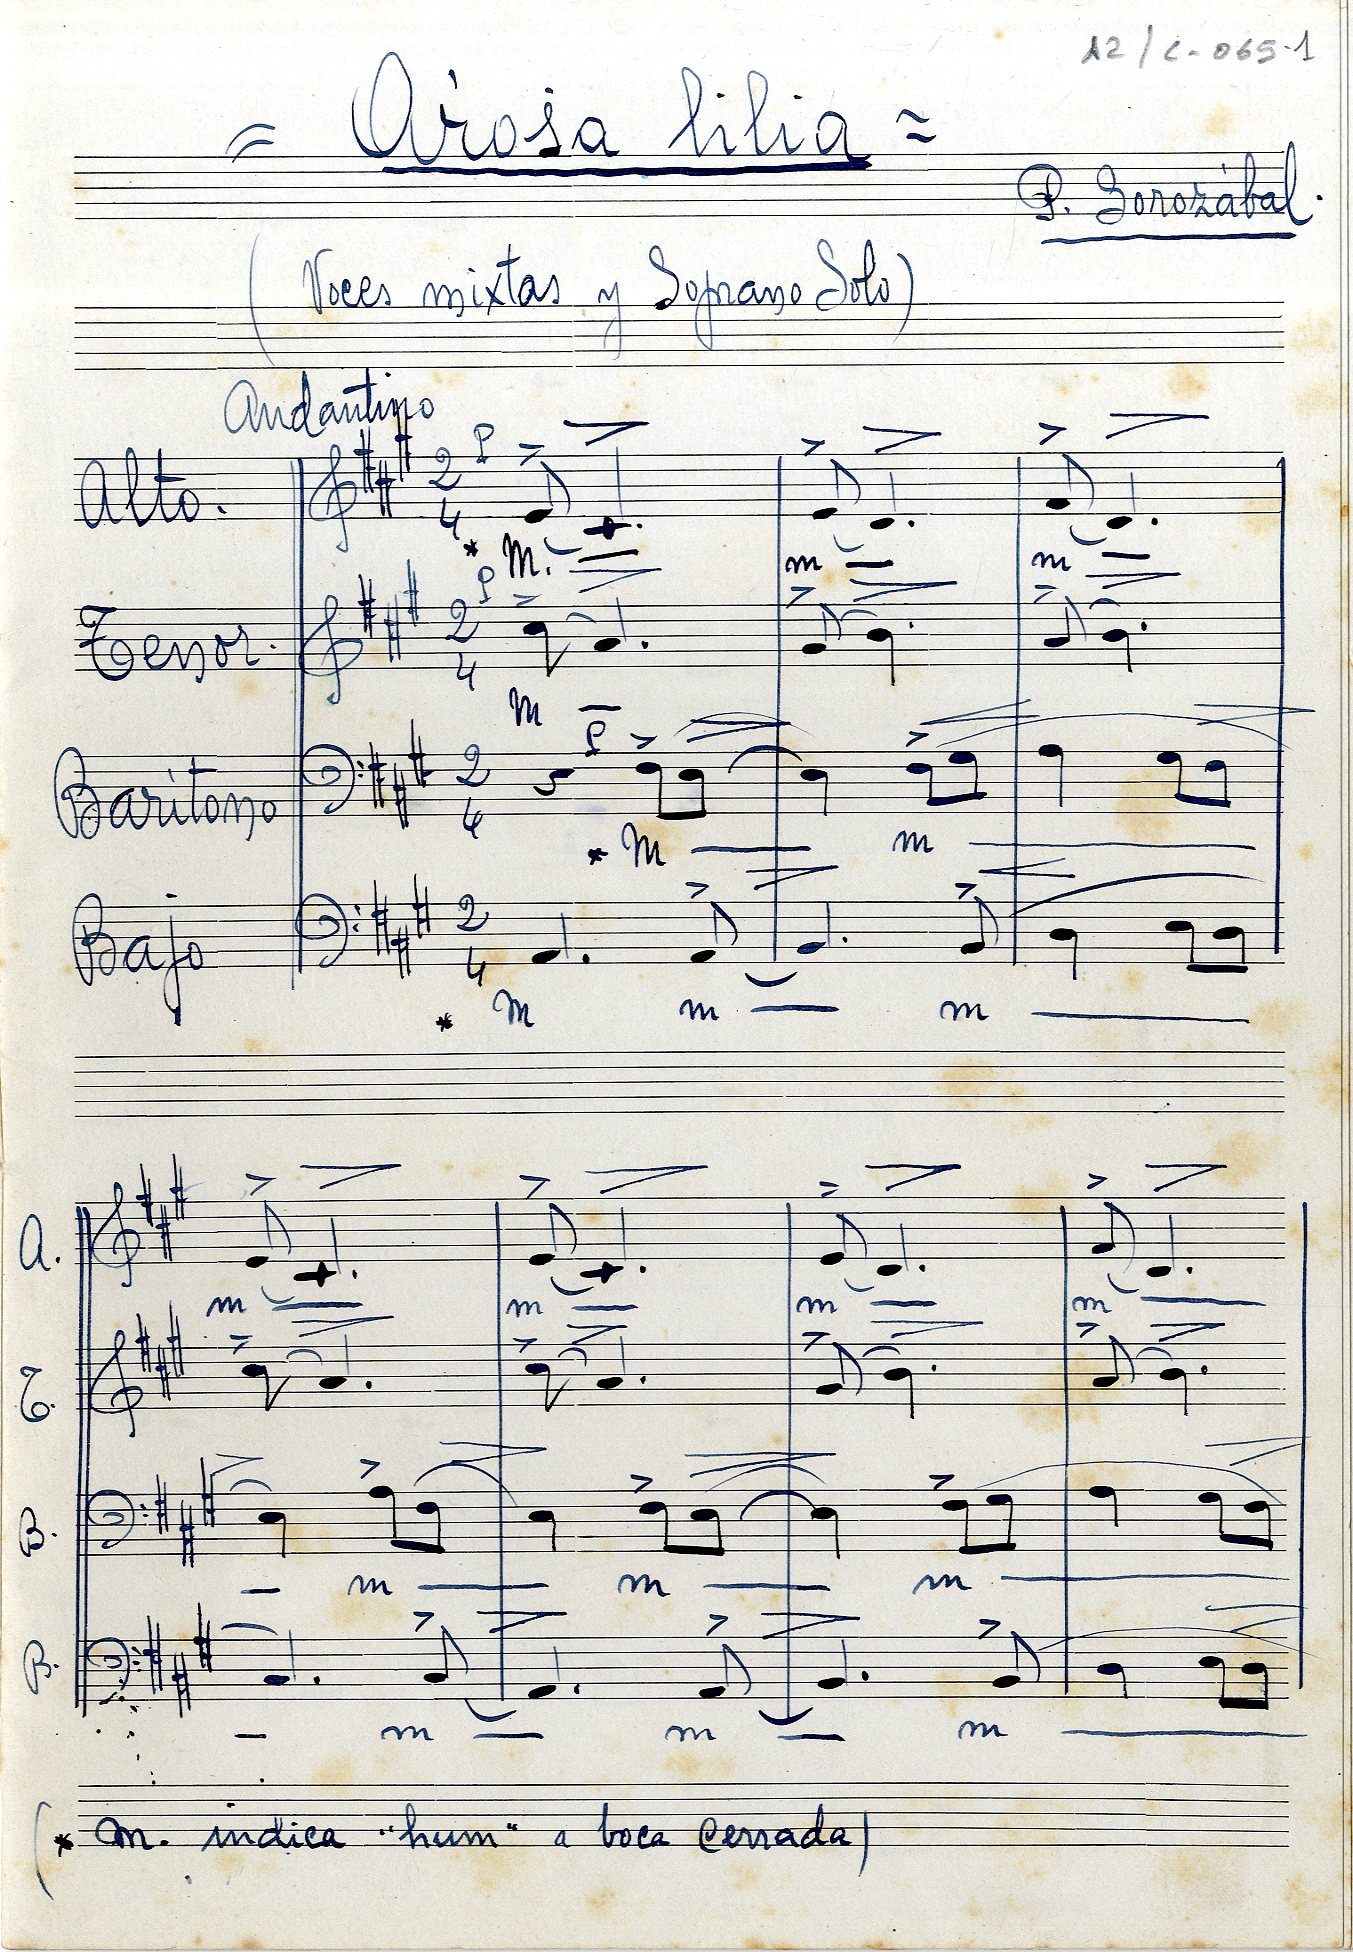 A2/C-065-1
= Arrosa lilia =
P. Sorozábal.
(Voces mixtas y Soprano Solo)
Andantino
Alto. 2 4 P
* M. m m
Tenor. 2 4 P
M
Baritono 2 4 P
* M m
Bajo 2 4
* M m m
A.
m m m m
T.
B.
m m m
B.
m m m
(* M. indica "hum" a boca cerrada)